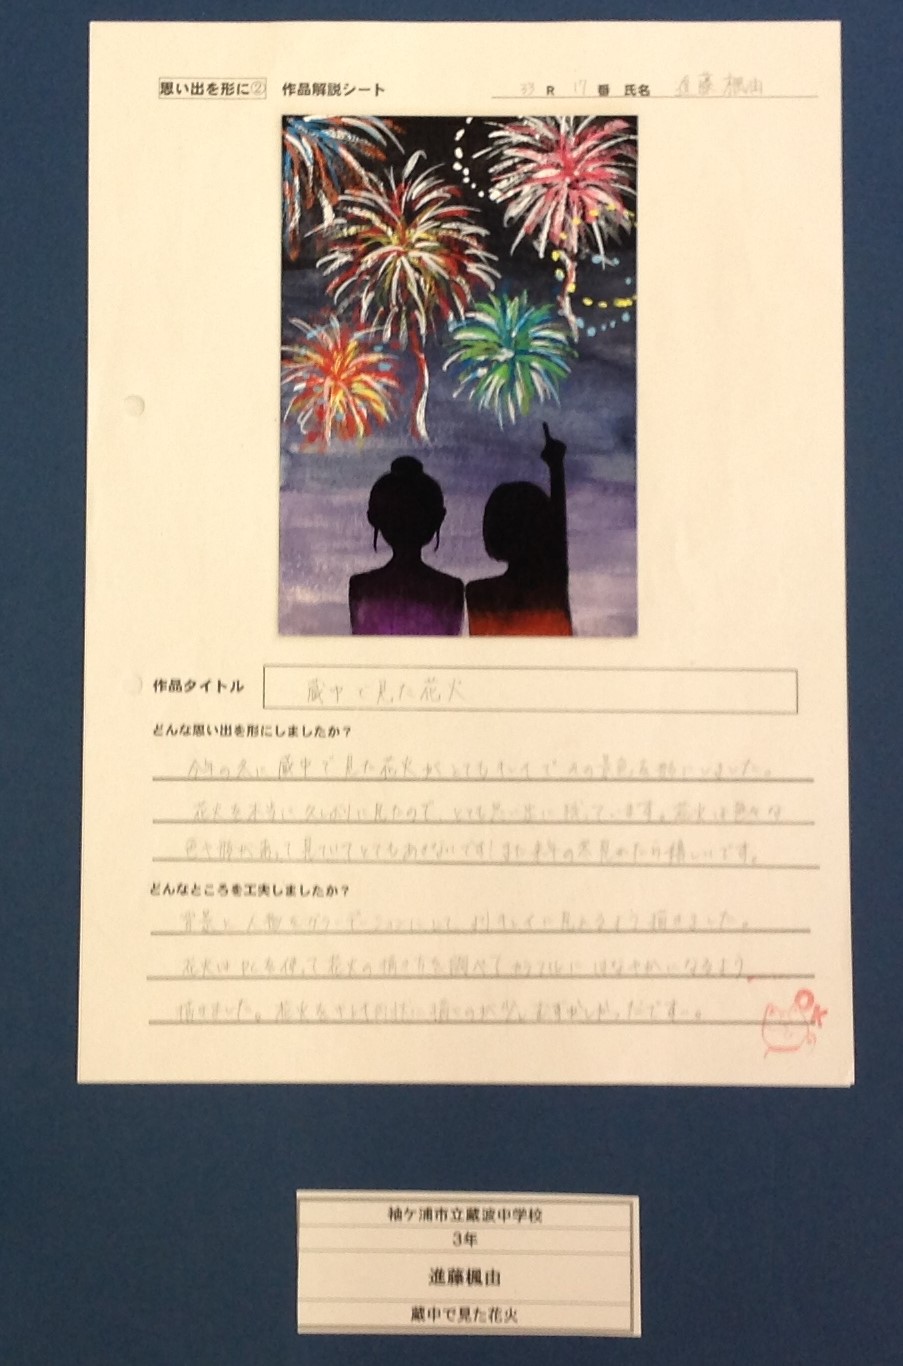 思い出を形に② 作品解説シート 33 R 17 番 氏名 進藤楓由
作品タイトル 蔵中で見た花火
どんな思い出を形にしましたか？
今年の冬に蔵中で見た花火がとてもキレイでその景色を形にしました。
花火を本当に久しぶりに見たので、とても思い出に残っています。花火は色々な
色や形があって見ていてとてもあきないです!また来年の冬見れたら嬉しいです。
どんなところを工夫しましたか？
背景と人物をグラデーションにして、よりキレイに見えるよう描きました。
花火はPCを使って花火の描き方を調べてカラフルにはなやかになるよう
描きました。花火をキレイに円状に描くのが少しむずかしかったです。
OK
袖ケ浦市立蔵波中学校
3年
進藤楓由
蔵中で見た花火